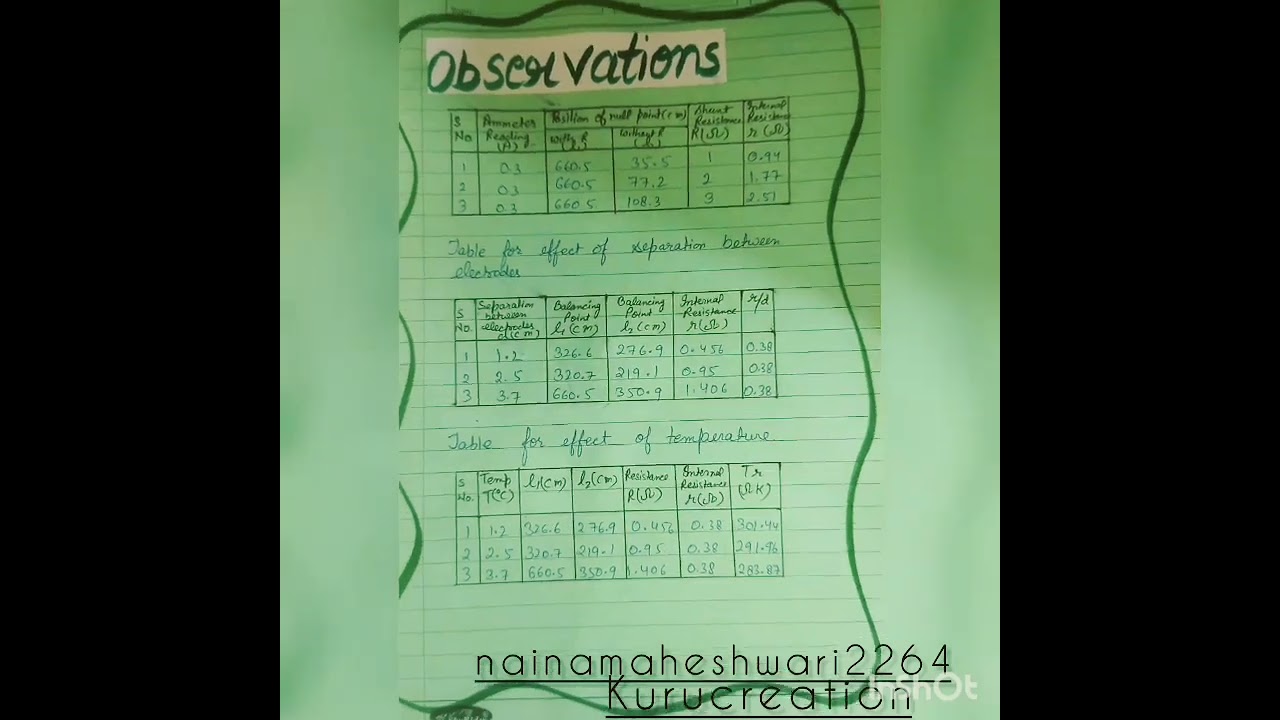 Observations
S No. | Ammeter Reading (A) | Position of null point (cm) | Shunt Resistance R(Ω) | Internal Resistance r(Ω)
with R | without R
1 | 0.3 | 660.5 | 35.5 | 1 | 0.94
2 | 0.3 | 660.5 | 77.2 | 2 | 1.77
3 | 0.3 | 660.5 | 108.3 | 3 | 2.51
Table for effect of separation between
electrodes
S No. | Separation between electrodes d(cm) | Balancing Point l₁(cm) | Balancing Point l₂(cm) | Internal Resistance r(Ω) | r/d
1 | 1.2 | 326.6 | 276.9 | 0.456 | 0.38
2 | 2.5 | 320.7 | 219.1 | 0.95 | 0.38
3 | 3.7 | 660.5 | 350.9 | 1.406 | 0.38
Table for effect of temperature
S No. | Temp T(°C) | l₁(cm) | l₂(cm) | Resistance R(Ω) | Internal Resistance r(Ω) | Tr (ΩK)
1 | 1.2 | 326.6 | 276.9 | 0.456 | 0.38 | 301.44
2 | 2.5 | 320.7 | 219.1 | 0.95 | 0.38 | 291.96
3 | 3.7 | 660.5 | 350.9 | 1.406 | 0.38 | 283.87
nainamaheshwari2264
Kurucreation
InShOt